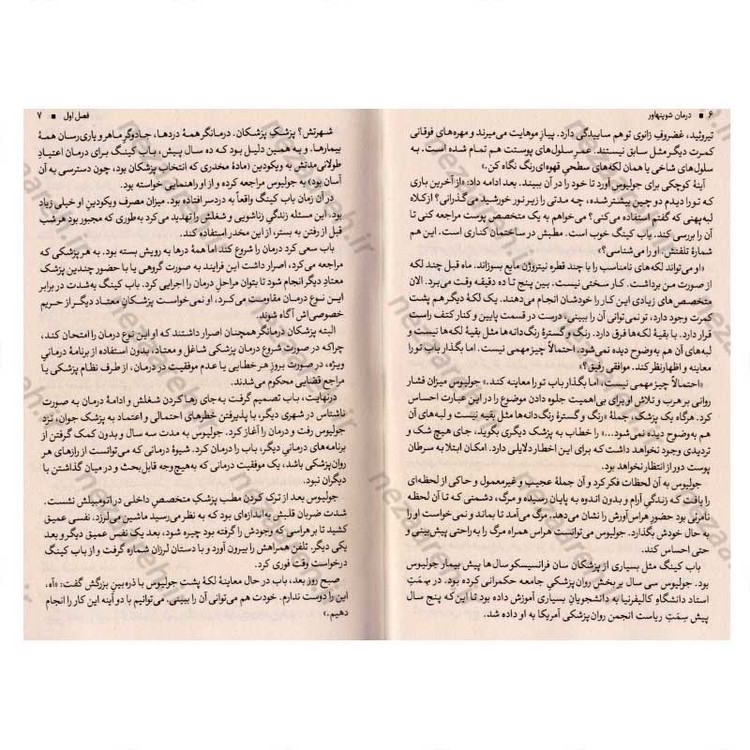 ۶ ■ درمان شوپنهاور
تیروئید، غضروفِ زانوی تو هم ساییدگی دارد. پیازِ موهایت می‌میرند و مهره‌های فوقانی
کمرت دیگر مثل سابق نیستند. عمر سلول‌های پوستت هم تمام شده است. به
سلول‌های شاخی یا همان لکه‌های سطحیِ قهوه‌ای‌رنگ نگاه کن.»
آینهٔ کوچکی برای جولیوس آورد تا خود را در آن ببیند. بعد ادامه داد: «از آخرین باری
که تو را دیدم دو چین بیشتر شده، چه مدتی را زیر نور خورشید می‌گذرانی؟ از کلاه
لبه‌پهنی که گفتم استفاده می‌کنی؟ می‌خواهم به یک متخصص پوست مراجعه کنی تا
آن را بررسی کند. باب کینگ خوب است. مطبش در ساختمان کناری است. این هم
شمارهٔ تلفنش. او را می‌شناسی؟»
«او می‌تواند لکه‌های نامناسب را با چند قطره نیتروژن مایع بسوزاند. ماه قبل چند لکه
از صورت من برداشت. کار سختی نیست. بین پنج تا ده دقیقه وقت می‌برد. الان
متخصص‌های زیادی این کار را خودشان انجام می‌دهند. یک لکهٔ دیگر هم پشت
کمرت وجود دارد، تو نمی‌توانی آن را ببینی. درست در قسمت پایین و کنار کتف راست
قرار دارد. با بقیهٔ لکه‌ها فرق دارد. رنگ و گسترهٔ رنگ‌دانه‌ها مثل بقیهٔ لکه‌ها نیست و
لبه‌های آن هم به‌وضوح دیده نمی‌شود. احتمالاً چیز مهمی نیست. اما بگذار باب تو را
معاینه و اظهارنظر کند. موافقی رفیق؟»
«احتمالاً چیز مهمی نیست، اما بگذار باب تو را معاینه کند.» جولیوس میزان فشار
روانی بر هرب و تلاش او برای بی‌اهمیت جلوه دادن موضوع را در این عبارت احساس
کرد. هرگاه یک پزشک، جملهٔ «رنگ و گسترهٔ رنگ‌دانه‌ها مثل بقیه نیست و لبه‌های آن
هم به‌وضوح دیده نمی‌شود...» را خطاب به پزشک دیگری بگوید، جای هیچ شک و
تردیدی وجود نخواهد داشت که برای این اخطار دلایلی دارد. امکان ابتلا به سرطان
پوست دور از انتظار نخواهد بود.
جولیوس به آن لحظات فکر کرد و آن جملهٔ عجیب و غیرمعمول و حاکی از لحظه‌ای
را یافت که زندگیِ آرام و بدون اندوه به پایان رسیده و مرگ، دشمنی که تا آن لحظه
نامرئی بود حضورِ هراس‌آورش را نشان می‌دهد. مرگ می‌آمد تا بماند و نمی‌خواست او را
به حال خودش بگذارد. جولیوس می‌توانست هراس همراه مرگ را به‌راحتی پیش‌بینی و
حتی احساس کند.
باب کینگ مثل بسیاری از پزشکان سان فرانسیسکو سال‌ها پیش بیمار جولیوس
بود. جولیوس سی سال بر بخش روان‌پزشکیِ جامعه حکمرانی کرده بود. در سِمَتِ
استاد دانشگاه کالیفرنیا به دانشجویان بسیاری آموزش داده بود تا این‌که پنج سال
پیش سِمَتِ ریاست انجمن روان‌پزشکی آمریکا به او داده شد.
فصل اول ■ ۷
شهرتش؟ پزشکِ پزشکان. درمانگر همهٔ دردها، جادوگر ماهر و یاری‌رسان همهٔ
بیمارها. و به همین دلیل بود که ده سال پیش، باب کینگ برای درمان اعتیادِ
طولانی‌مدتش به ویکودین (مادهٔ مخدری که انتخاب پزشکان بود، چون دسترسی به آن
آسان بود) به جولیوس مراجعه کرده و از او راهنمایی خواسته بود.
در آن زمان باب کینگ واقعاً به دردسر افتاده بود. میزان مصرف ویکودینِ او خیلی زیاد
بود. این مسئله زندگیِ زناشویی و شغلش را تهدید می‌کرد به‌طوری که مجبور بود هر شب
قبل از رفتن به بستر، از این مخدر استفاده کند.
باب سعی کرد درمان را شروع کند اما همهٔ درها به رویش بسته بود. به هر پزشکی که
مراجعه می‌کرد، اصرار داشت این فرایند به صورت گروهی یا با حضور چندین پزشک
معتاد دیگر انجام شود تا بتوان مراحلِ درمان را اجرایی کرد. باب کینگ به‌شدت در برابر
این نوع درمان مقاومت می‌کرد، او نمی‌خواست پزشکانِ معتاد دیگر از حریم
خصوصی‌اش آگاه شوند.
البته پزشکان درمانگر همچنان اصرار داشتند که او این نوع درمان را امتحان کند،
چراکه در صورت شروع درمان پزشکی شاغل و معتاد، بدون استفاده از برنامهٔ درمانیِ
ویژه، در صورت بروزِ هر خطایی یا عدم موفقیت در درمان، از طرف نظام پزشکی یا
مراجع قضایی محکوم می‌شدند.
درنهایت، باب تصمیم گرفت به جای رها کردن شغلش و ادامهٔ درمان به صورت
ناشناس در شهری دیگر، با پذیرفتن خطرهای احتمالی و اعتماد به پزشک جوان، نزد
جولیوس رفت و درمان را آغاز کرد. جولیوس به مدت سه سال و بدون کمک گرفتن از
برنامه‌های درمانیِ دیگر، باب را درمان کرد. شیوهٔ درمانی که می‌توانست از رازهای هر
روان‌پزشکی باشد، یک موفقیت درمانی که به‌هیچ‌وجه قابل‌بحث و در میان گذاشتن با
دیگران نبود.
جولیوس بعد از ترک کردن مطب پزشک متخصص داخلی در اتومبیلش نشست.
شدت ضربان قلبش به‌اندازه‌ای بود که به نظر می‌رسید ماشین می‌لرزد. نفسی عمیق
کشید تا بر هراسی که وجودش را گرفته بود چیره شود، بعد یک نفس عمیق دیگر و بعد
یکی دیگر. تلفن همراهش را بیرون آورد و با دستان لرزان شماره گرفت و از باب کینگ
درخواست وقت فوری کرد.
صبح روز بعد، باب در حال معاینهٔ لکهٔ پشتِ جولیوس با ذره‌بینِ بزرگش گفت: «آه،
این را دوست ندارم. خودت هم می‌توانی آن را ببینی. می‌توانیم با دو آینه این کار را انجام
دهیم.»
nezareh.ir